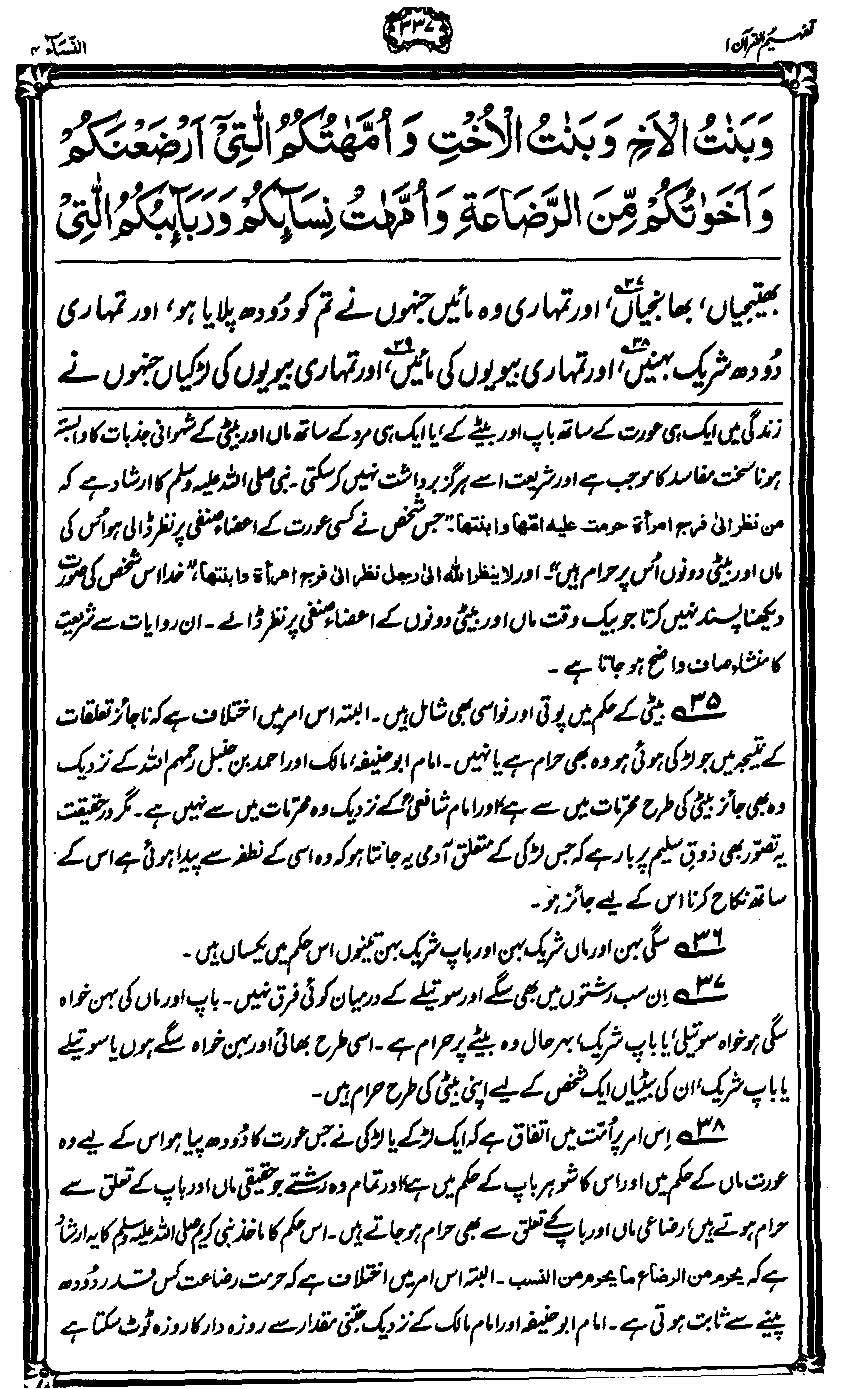 تفہیم القرآن ۱
۳۳۷
النساء ۴
وَبَنٰتُ الْاَخِ وَبَنٰتُ الْاُخْتِ وَاُمَّهٰتُكُمُ الّٰتِيْۤ اَرْضَعْنَكُمْ
وَاَخَوٰتُكُمْ مِّنَ الرَّضَاعَةِ وَاُمَّهٰتُ نِسَآئِكُمْ وَرَبَآئِبُكُمُ الّٰتِيْ
بھتیجیاں، بھانجیاں،۳۷ اور تمہاری وہ مائیں جنہوں نے تم کو دُودھ پلایا ہو، اور تمہاری
دُودھ شریک بہنیں،۳۸ اور تمہاری بیویوں کی مائیں،۳۹ اور تمہاری بیویوں کی لڑکیاں جنہوں نے
زندگی میں ایک ہی عورت کے ساتھ باپ اور بیٹے کے، یا ایک ہی مرد کے ساتھ ماں اور بیٹی کے شہوانی جذبات کا وابستہ
ہونا سخت مفاسد کا موجب ہے اور شریعت اسے ہرگز برداشت نہیں کر سکتی۔ نبی صلی اللہ علیہ وسلم کا ارشاد ہے کہ
من نظر الیٰ فرج امرأة حرمت علیه امّها وابنتها۔ ”جس شخص نے کسی عورت کے اعضاء صنفی پر نظر ڈالی ہو اُس کی
ماں اور بیٹی دونوں اُس پر حرام ہیں“۔ اور لا ینظر الله الیٰ رجل نظر الیٰ فرج امرأة وابنتها، ”خدا اس شخص کی صورت
دیکھنا پسند نہیں کرتا جو بیک وقت ماں اور بیٹی دونوں کے اعضاء صنفی پر نظر ڈالے۔ ان روایات سے شریعت
کا منشاء صاف واضح ہو جاتا ہے۔
۳۵ بیٹی کے حکم میں پوتی اور نواسی بھی شامل ہیں۔ البتہ اس امر میں اختلاف ہے کہ ناجائز تعلقات
کے نتیجہ میں جو لڑکی ہوئی ہو وہ بھی حرام ہے یا نہیں۔ امام ابو حنیفہ، مالک اور احمد بن حنبل رحمہم اللہ کے نزدیک
وہ بھی جائز بیٹی کی طرح محرمات میں سے ہے، اور امام شافعیؒ کے نزدیک وہ محرمات میں سے نہیں ہے۔ مگر درحقیقت
یہ تصوّر بھی ذوقِ سلیم پر بار ہے کہ جس لڑکی کے متعلق آدمی یہ جانتا ہو کہ وہ اسی کے نطفہ سے پیدا ہوئی ہے اس کے
ساتھ نکاح کرنا اس کے لیے جائز ہو۔
۳۶ سگی بہن اور ماں شریک بہن اور باپ شریک بہن تینوں اس حکم میں یکساں ہیں۔
۳۷ اِن سب رشتوں میں بھی سگے اور سوتیلے کے درمیان کوئی فرق نہیں۔ باپ اور ماں کی بہن خواہ
سگی ہو خواہ سوتیلی، یا باپ شریک، بہرحال وہ بیٹے پر حرام ہے۔ اسی طرح بھائی اور بہن خواہ سگے ہوں یا سوتیلے
یا باپ شریک، ان کی بیٹیاں ایک شخص کے لیے اپنی بیٹی کی طرح حرام ہیں۔
۳۸ اِس امر پر اُمّت میں اتفاق ہے کہ ایک لڑکے یا لڑکی نے جس عورت کا دُودھ پیا ہو اس کے لیے وہ
عورت ماں کے حکم میں اور اس کا شوہر باپ کے حکم میں ہے، اور تمام وہ رشتے جو حقیقی ماں اور باپ کے تعلق سے
حرام ہوتے ہیں، رضاعی ماں اور باپ کے تعلق سے بھی حرام ہو جاتے ہیں۔ اس حکم کا ماخذ نبی کریم صلی اللہ علیہ وسلم کا یہ ارشاد
ہے کہ یحرم من الرضاع ما یحرم من النسب۔ البتہ اس امر میں اختلاف ہے کہ حرمت رضاعت کس قدر دُودھ
پینے سے ثابت ہوتی ہے۔ امام ابو حنیفہ اور امام مالک کے نزدیک جتنی مقدار سے روزہ دار کا روزہ ٹوٹ سکتا ہے